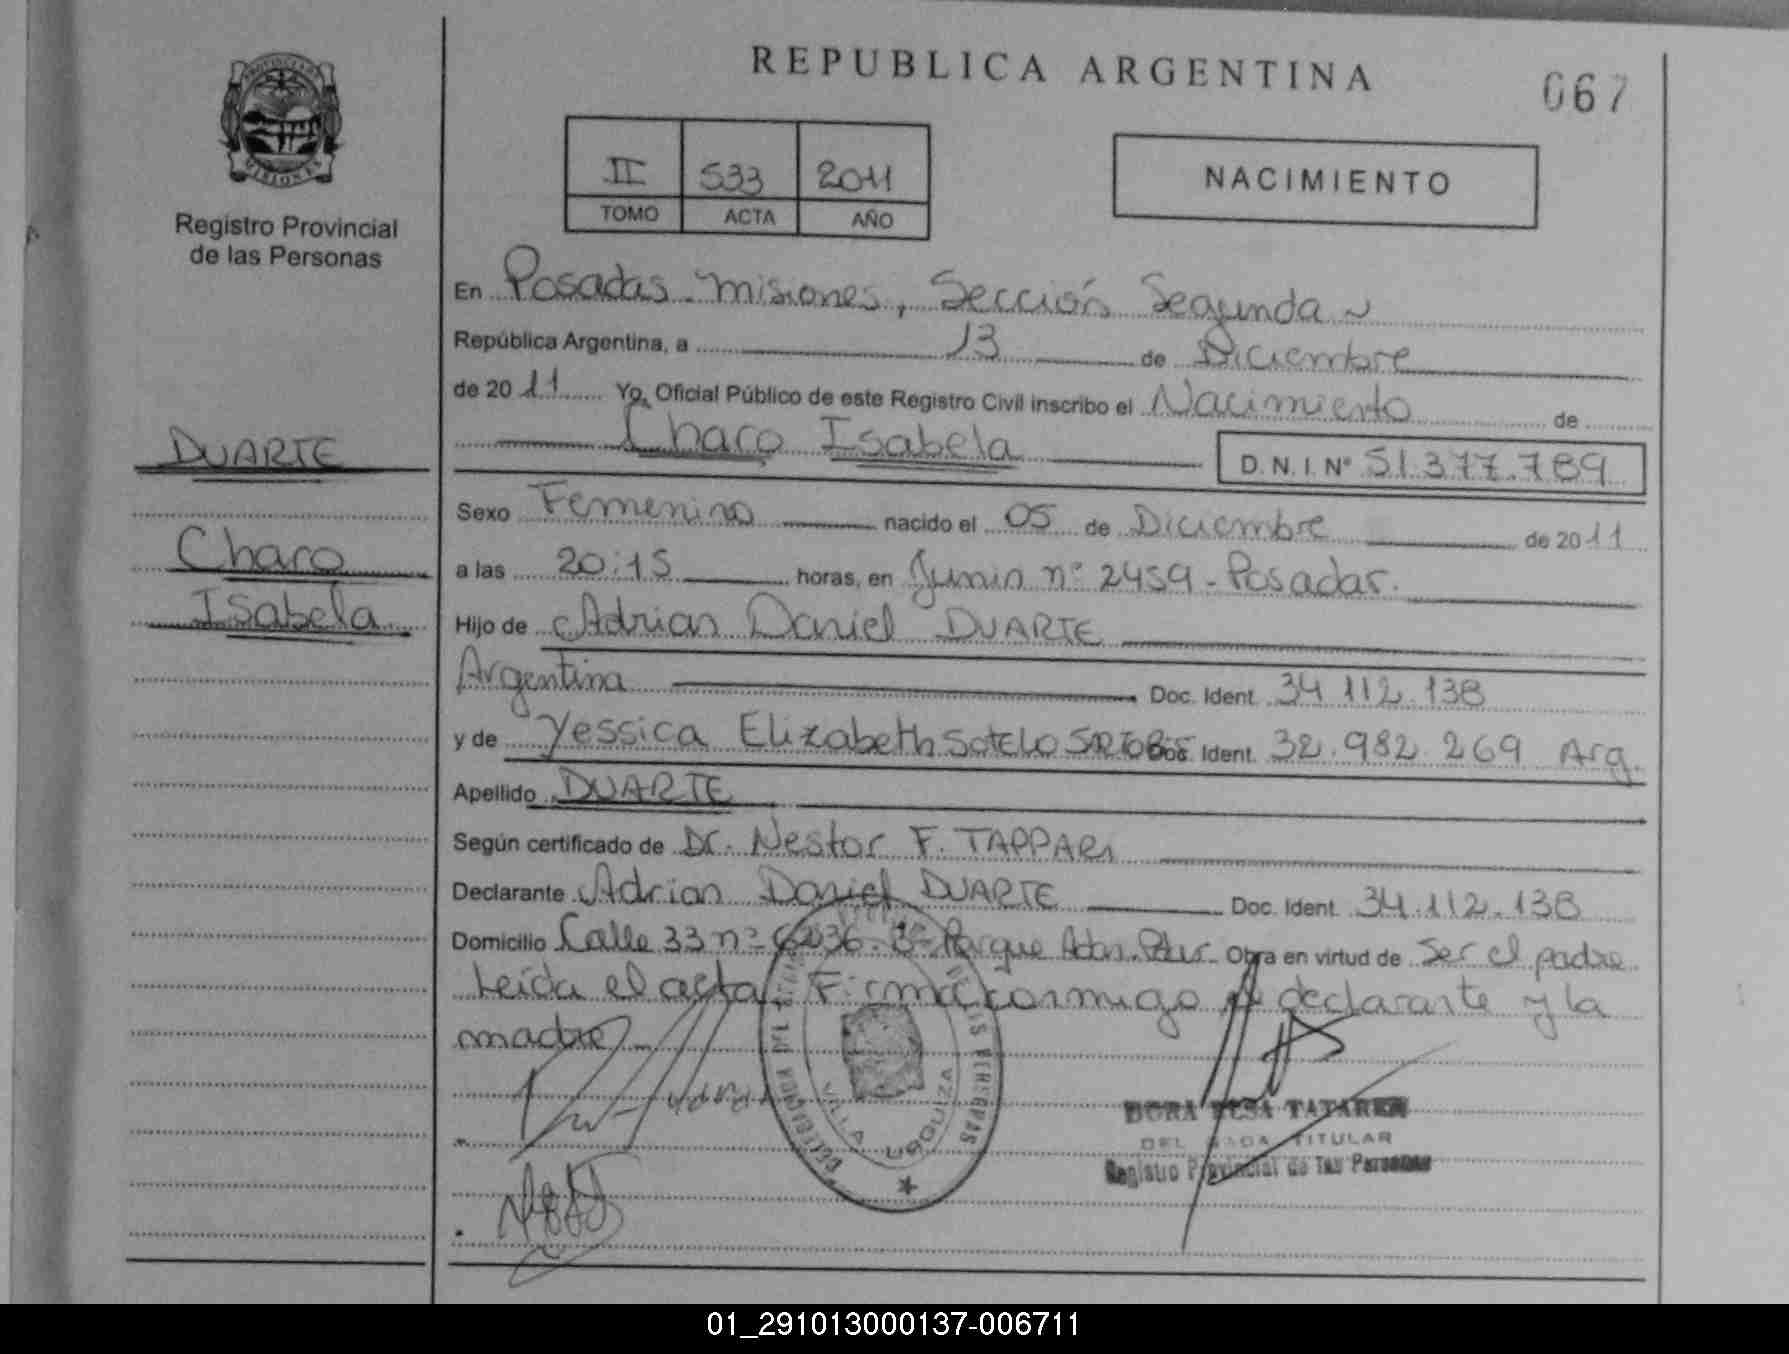 REPUBLICA ARGENTINA
067
PROVINCIA DE
MISIONES
Registro Provincial
de las Personas
II 533 2011
TOMO ACTA AÑO
NACIMIENTO
En Posadas - Misiones, Sección Segunda ~
República Argentina, a 13 de Diciembre
de 2011 Yo, Oficial Público de este Registro Civil inscribo el Nacimiento de
Charo Isabela D.N.I. N° 51.377.789
DUARTE
Charo
Isabela
Sexo Femenino nacido el 05 de Diciembre de 2011
a las 20:15 horas, en Junin n° 2459 - Posadas.
Hijo de Adrian Daniel DUARTE
Argentina Doc. Ident. 34.112.138
y de Yessica Elizabeth SOTELO Doc. Ident. 32.982.269 Arg.
Apellido DUARTE
Según certificado de Dr. Nestor F. TAPPARI
Declarante Adrian Daniel DUARTE Doc. Ident. 34.112.138
Domicilio Calle 33 n° Parque Obra en virtud de Ser el padre
Leida el acta Firma conmigo el declarante y la
madre
DELEGACION
DE LAS PERSONAS
VILLA URQUIZA
DORA ELSA
DELEGADA TITULAR
Registro Provincial de las Personas
01_291013000137-006711